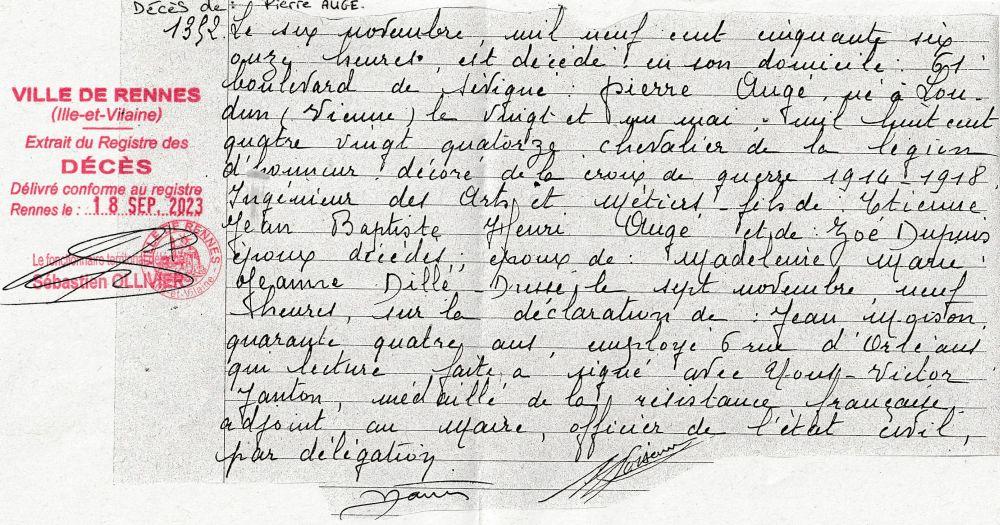 Décès de : Pierre AUGE.
1392. Le six novembre, mil neuf cent cinquante six
onze heures, est décédé en son domicile: 61
boulevard de Sévigné : Pierre Augé, né à Lou-
dun (Vienne) le vingt et un mai, mil huit cent
quatre vingt quatorze chevalier de la légion
d'honneur décoré de la croix de guerre 1914-1918,
Ingénieur des Arts et Métiers - fils de : Etienne
Jean Baptiste Henri Augé et de : Zoé Dupuis
époux décédés ; époux de : Madeleine Marie
Jeanne Dillé - Dressé le sept novembre, neuf
heures, sur la déclaration de : Jean Moison,
quarante quatre ans, employé 6 rue d'Orléans
qui lecture faite a signé avec Nous - Victor
Janton, médaillé de la résistance française,
adjoint au Maire, officier de l'état civil,
par délégation.
VILLE DE RENNES
(Ille-et-Vilaine)
Extrait du Registre des
DÉCÈS
Délivré conforme au registre
Rennes le : 18 SEP. 2023
Le fonctionnaire territorial
Sébastien OLLIVIER
VILLE DE RENNES
Ille-et-Vilaine